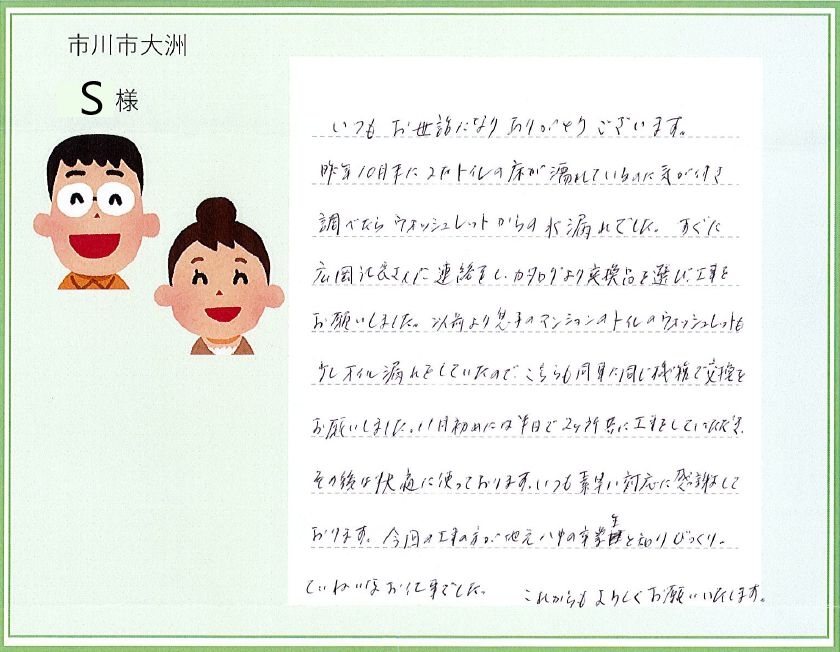 市川市大洲
S 様
いつもお世話になりありがとうございます。
昨年10月末に2Fトイレの床が濡れているのに気が付き
調べたらウォッシュレットからの水漏れでした。すぐに
広岡社長さんに連絡をし、カタログより交換品を選び工事を
お願いしました。以前より息子のマンションのトイレのウォッシュレットも
少しオイル漏れをしていたので、こちらも同時に同じ機種で交換を
お願いしました。11月初めには半日で2ヶ所共に工事をしていただき、
その後は快適に使っております。いつも素早い対応に感謝して
おります。今回の工事の方が地元八中の卒業生と知りびっくり。
ていねいなお仕事でした。 これからもよろしくお願いいたします。